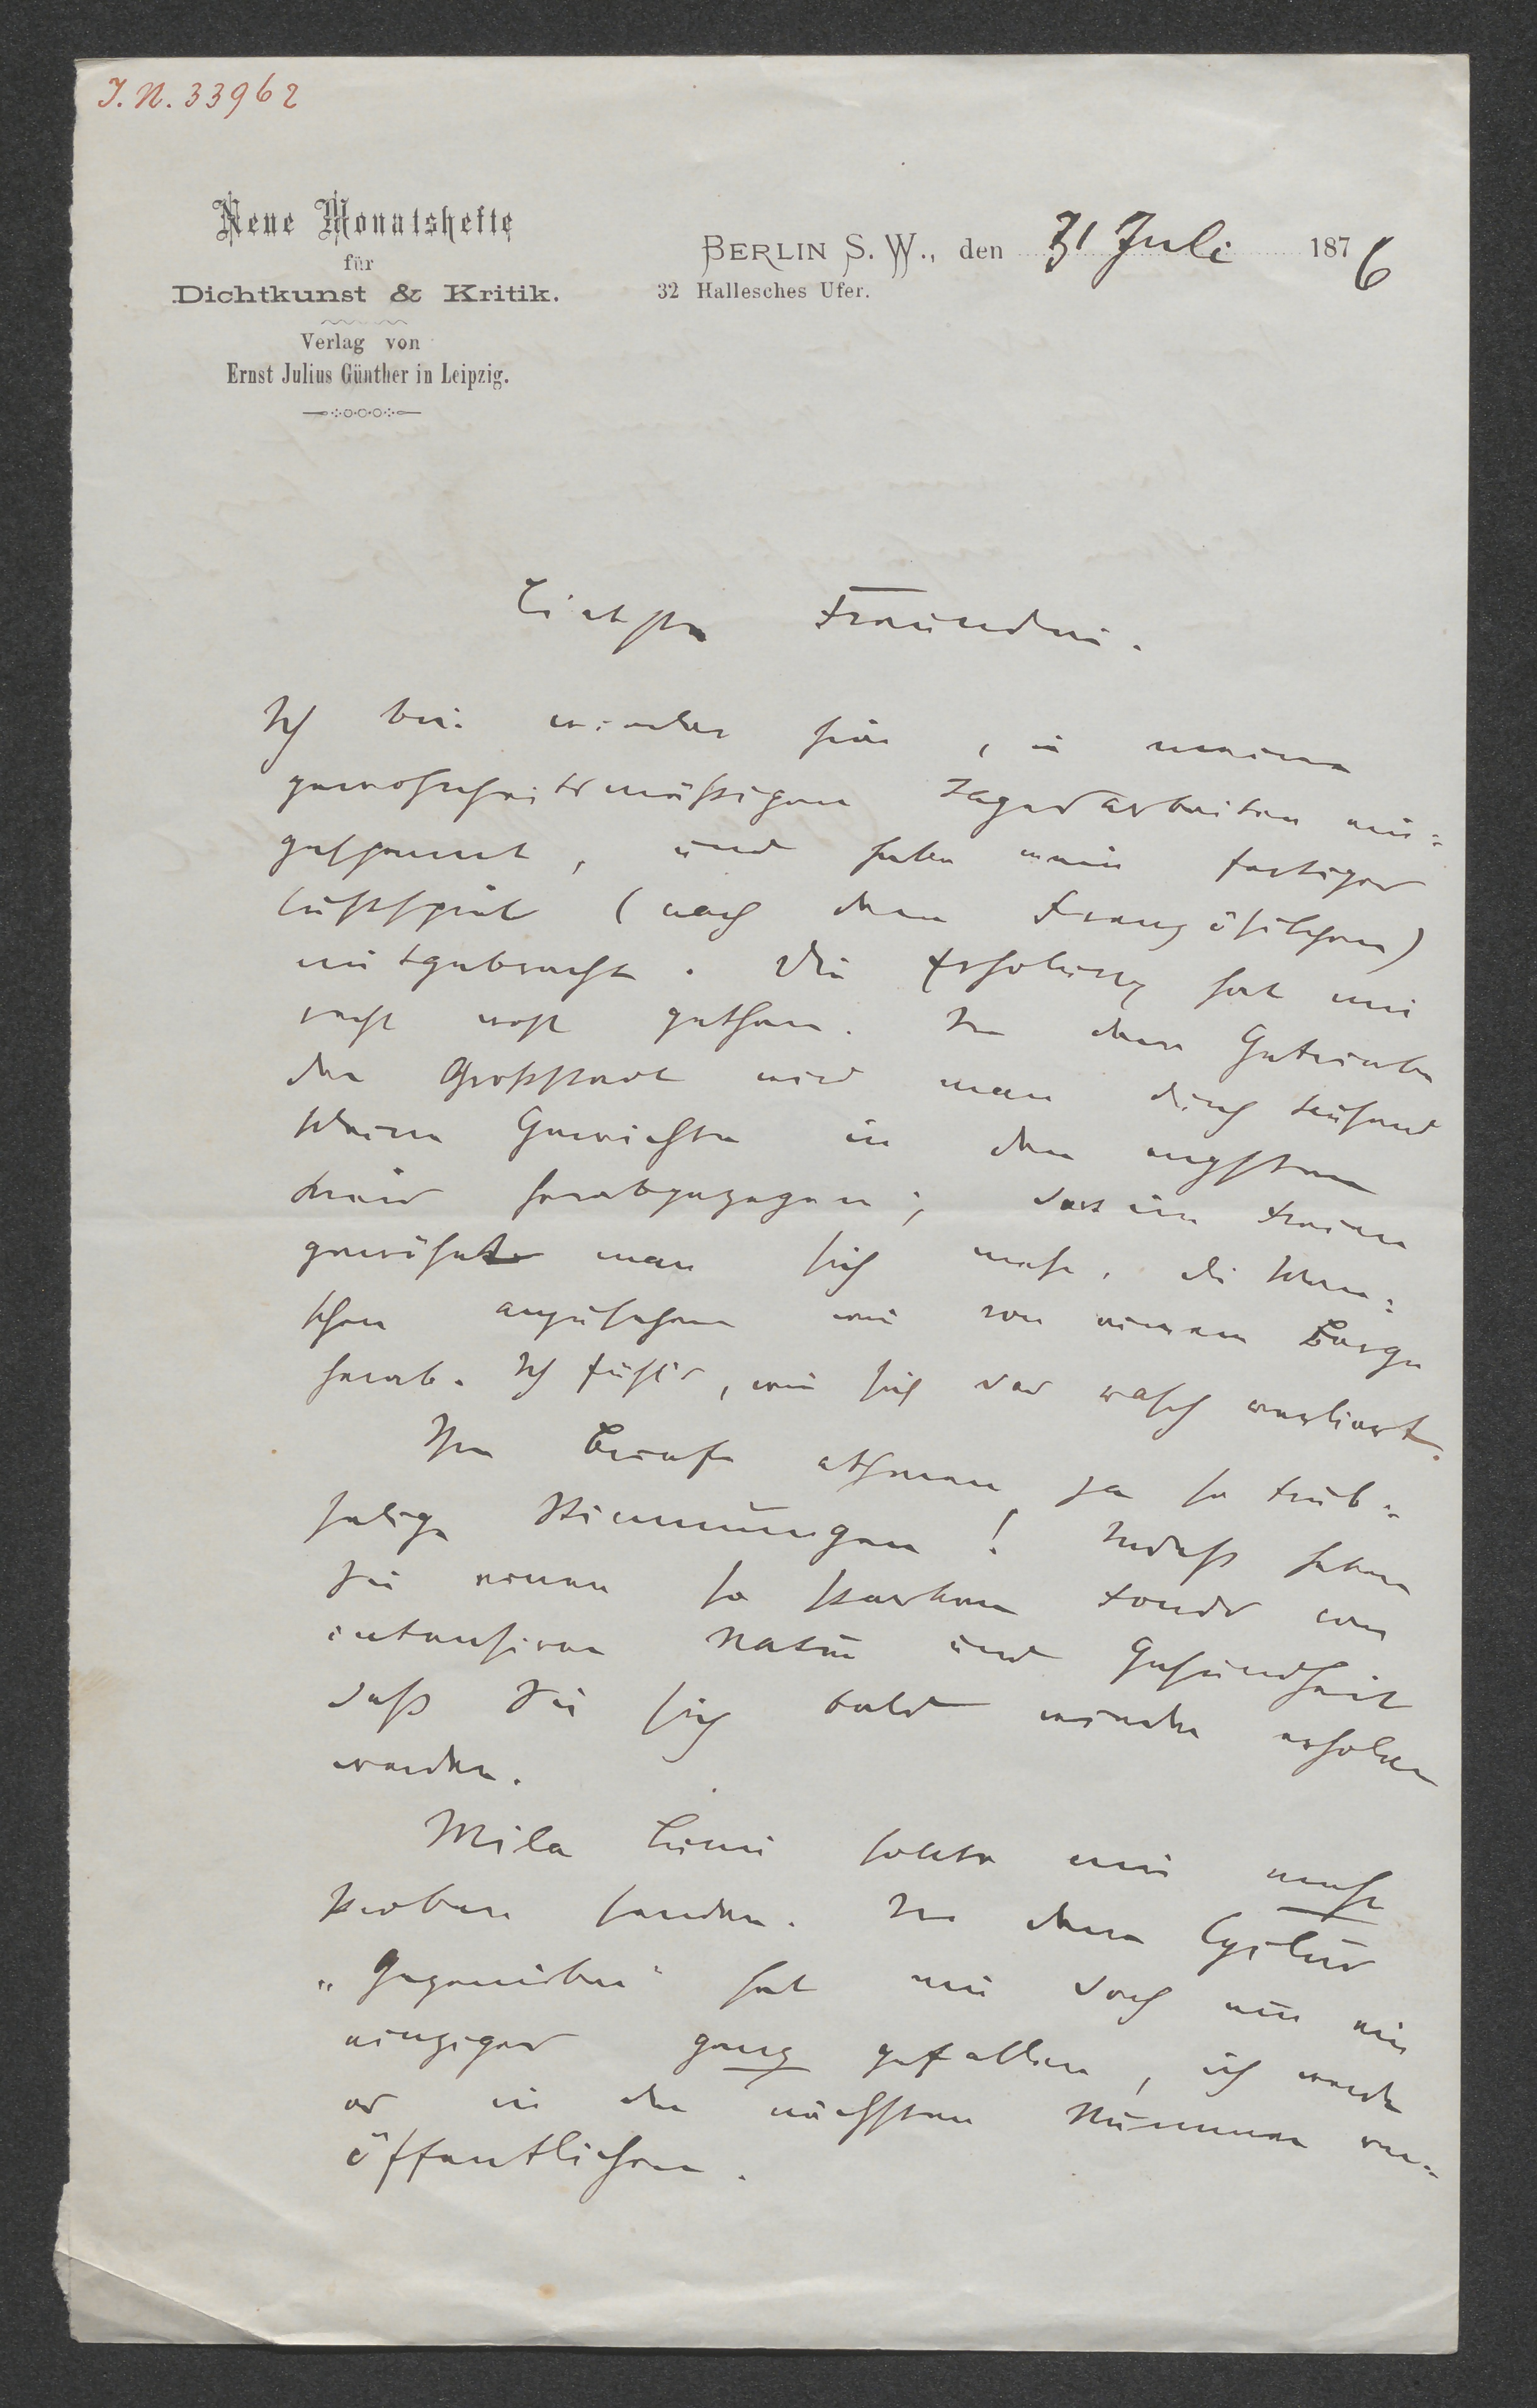 I. N. 33962
Neue Monatshefte
für
Dichtkunst & Kritik.
Verlag von
Ernst Julius Günther in Leipzig.
BERLIN S. W., den 31 Juli 1876
32 Hallesches Ufer.
Liebste Freundin.
Ich bin wieder hier, in meine
gewohnheitsmäßigen Tagesarbeiten ein-
gespannt, und habe mein fertiges
Lustspiel (nach dem Französischen)
mitgebracht. Die Erholung hat mir
recht wohl gethan. In dem Getriebe
der Großstadt wird man durch tausend
kleine Gewichte in den engsten
Kreis herabgezogen; daußen
gewöhnt man sich mehr, die Men-
schen anzusehen wie von einem Berge
herab. Ich fühl's, wie sich das rasch verliert.
Ihre Briefe athmen ja so trüb-
selige Stimmungen! Indeß haben
Sie einen so starken Fonds von
intensiver Natur und Gesundheit
daß Sie sich bald wieder erholen
werden.
Mila sollte mir mehr
Proben senden. In dem Cyclus
„Gegenüber" hat mir doch nur ein
einziges ganz gefallen, ich werde
es in den nächsten Nummern ver-
öffentlichen.